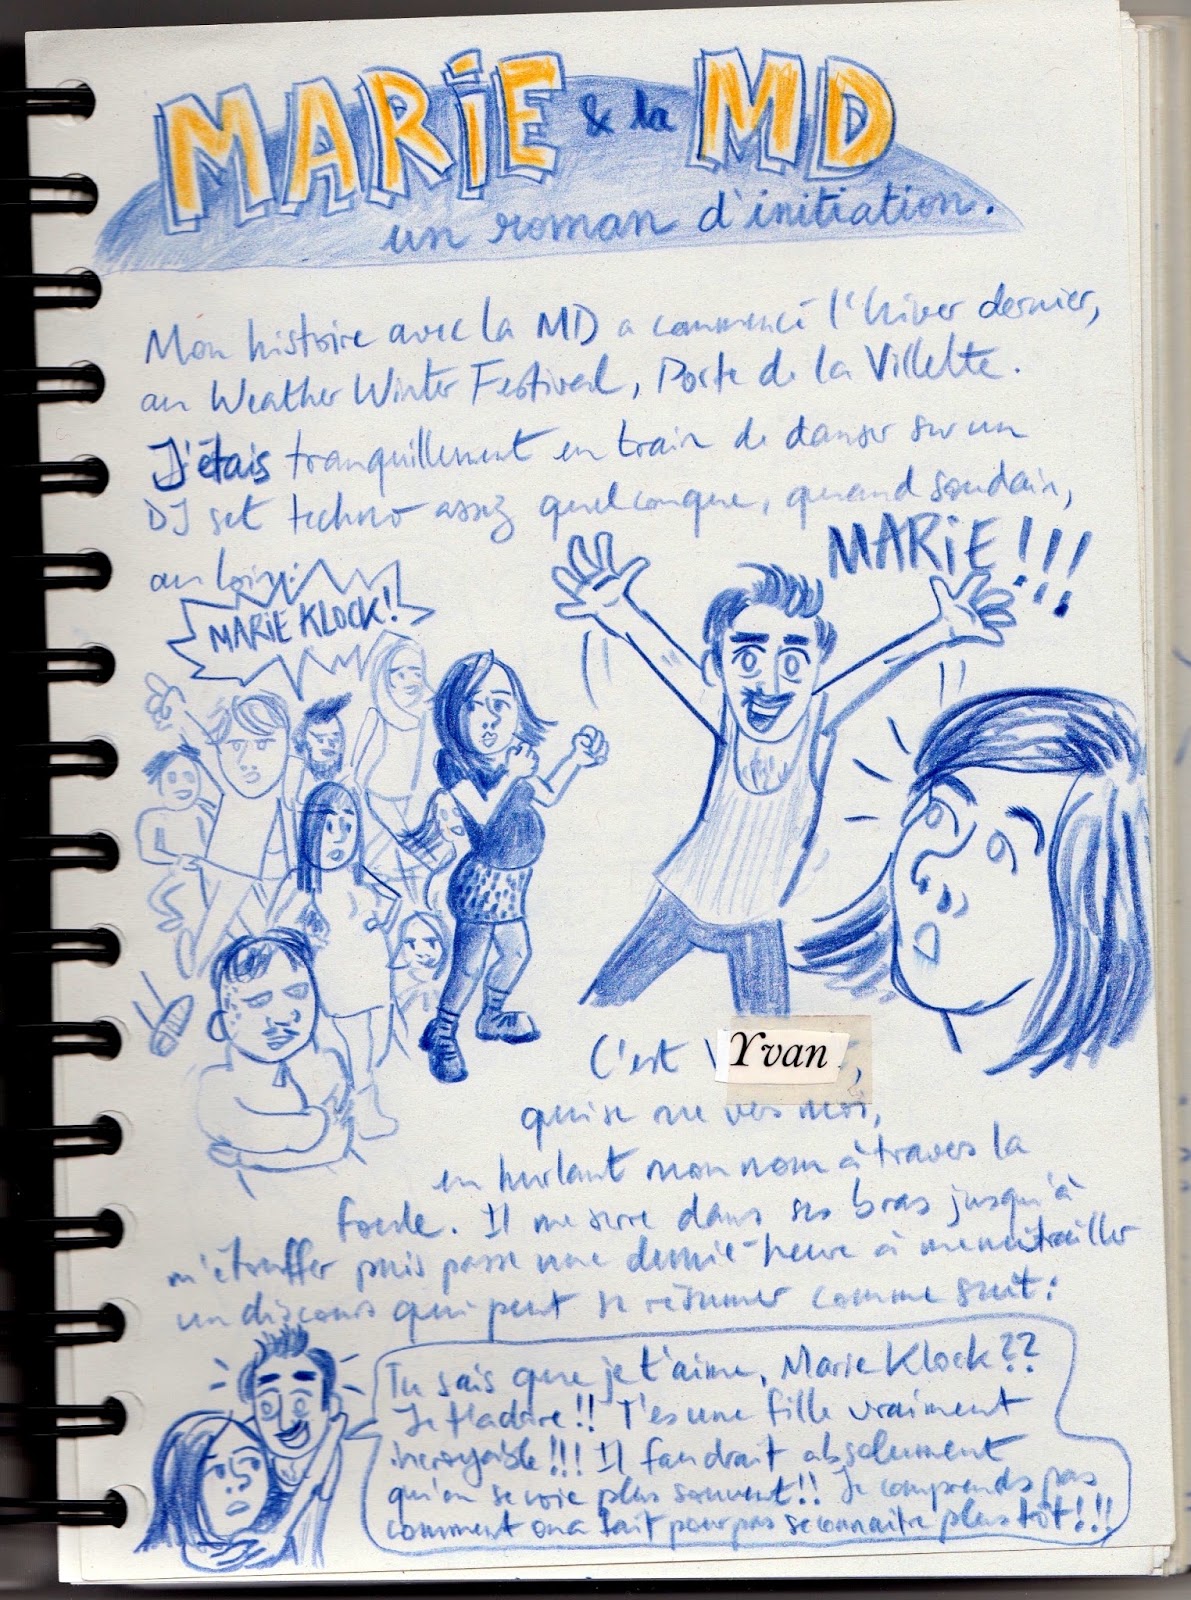 MARiE & la MD
un roman d'initiation.
Mon histoire avec la MD a commencé l'hiver dernier,
au Weather Winter Festival, Porte de la Villette.
J'étais tranquillement en train de danser sur un
DJ set techno assez quelconque, quand soudain,
au loin:
MARIE KLOCK!
MARiE!!!
C'est Yvan,
qui se rue vers moi,
en hurlant mon nom à travers la
foule. Il me serre dans ses bras jusqu'à
m'étouffer puis passe une demie-heure à me mitrailler
un discours qui peut se résumer comme suit:
Tu sais que je t'aime, Marie Klock??
Je t'adore!! T'es une fille vraiment
incroyable!!! Il faudrait absolument
qu'on se voie plus souvent!! Je comprends pas
comment on a fait pour pas se connaitre plus tôt!!!